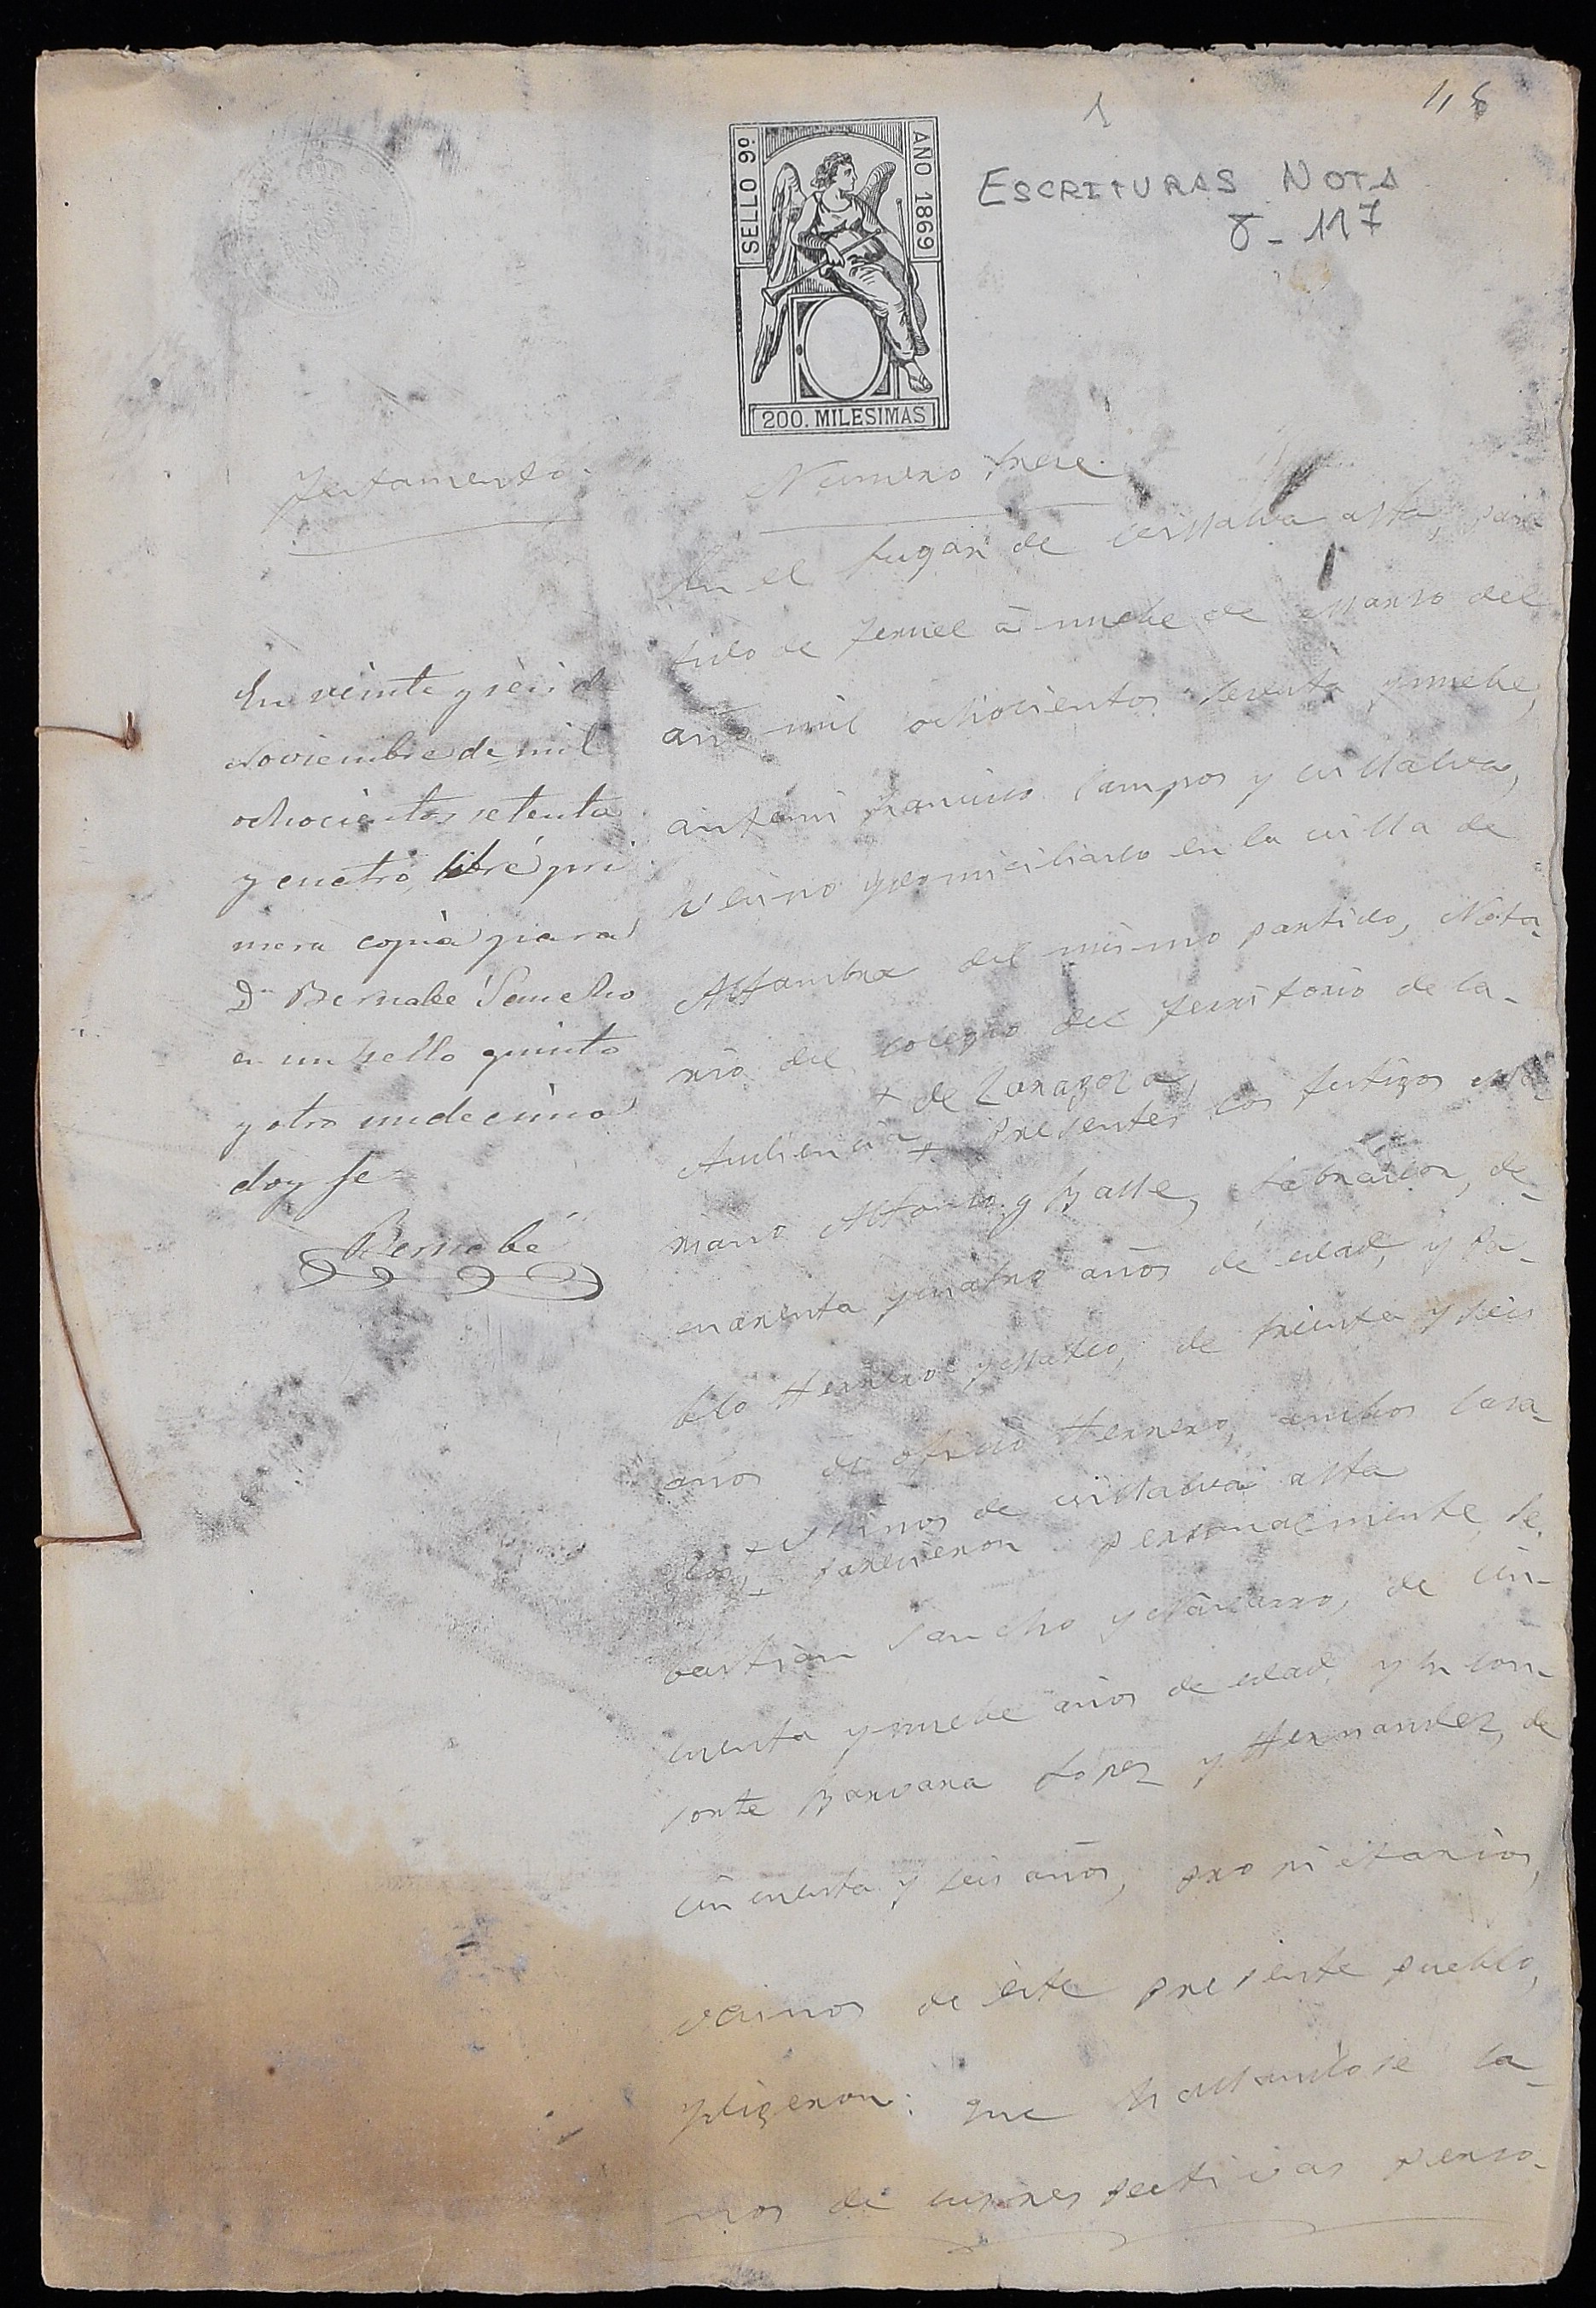 1
48
SELLO 9º
AÑO 1869
200. MILESIMAS
ESCRITURAS NOTA
8-117
Testamento.
Numero trece.
En el lugar de Villalva alta, par-
tido de Teruel á nuebe de Marzo del
año mil ochocientos sesenta y nuebe,
antemi Francisco Campos y Villalva,
Vecino y domiciliado en la villa de
Alfambra del mismo partido, Nota-
rio del colegio del territorio de la-
+ de Zaragoza,
Audiencia + presentes los testigos Ma-
riano Alfonso y Balle, Labrador, de-
cuarenta y cuatro años de edad, y Pa-
blo Herrero y Mateo, de treinta y seis
años de oficio Herrero, ambos casa-
+ Vecinos de Villalva alta
dos, + parecieron personalmente Se-
bastian Sancho y Navarro, de cin-
cuenta y nuebe años de edad, y su con-
sorte Barvara Lopez y Hernandez, de
cincuenta y seis años, propietarios,
vecinos de este presente pueblo,
y digeron: que hallandose la-
nos de sus respectivas perso-
En veinte y seis de
Noviembre de mil
ochocientos setenta
y cuatro, libré pri
mera copia para
Dn Bernabé Sancho
en un sello quinto
y otro undecimo
doy fe=
Bernabé